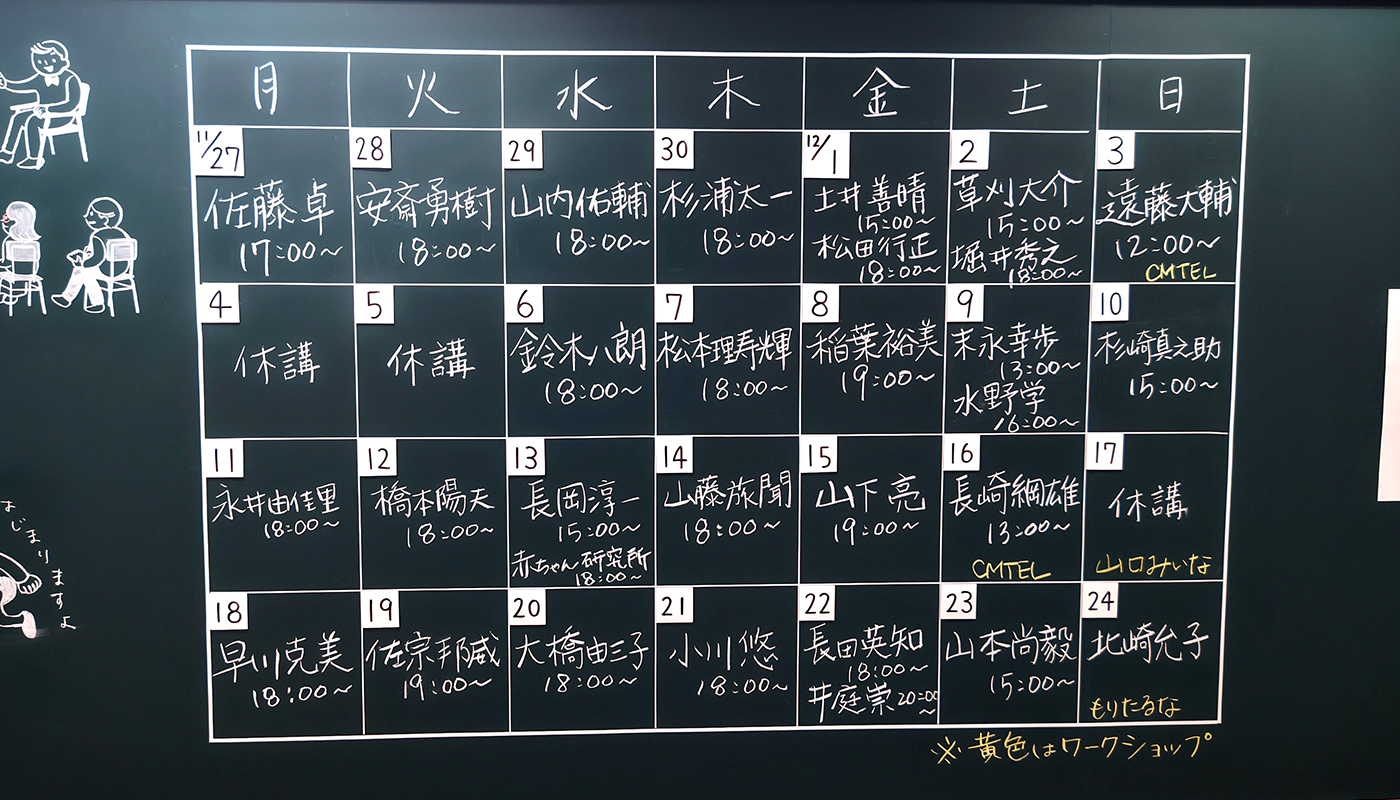 月 火 水 木 金 土 日
11/27
佐藤卓
17:00〜
28
安斎勇樹
18:00〜
29
山内佑輔
18:00〜
30
杉浦太一
18:00〜
12/1
土井善晴
15:00〜
松田行正
18:00〜
2
草刈大介
15:00〜
堀井秀之
18:00〜
3
遠藤大輔
12:00〜
CMTEL
4
休講
5
休講
6
鈴木八朗
18:00〜
7
松本理寿輝
18:00〜
8
稲葉裕美
19:00〜
9
末永幸歩
13:00〜
水野学
16:00〜
10
杉崎真之助
15:00〜
11
永井由佳里
18:00〜
12
橋本陽夫
18:00〜
13
長岡淳一
15:00〜
赤ちゃん研究所
18:00〜
14
山藤旅聞
18:00〜
15
山下亮
19:00〜
16
長崎綱雄
13:00〜
CMTEL
17
休講
山口みいな
18
早川克美
18:00〜
19
佐宗邦威
19:00〜
20
大橋由三子
18:00〜
21
小川悠
18:00〜
22
長田英知
18:00〜
井庭崇 20:00〜
23
山本尚毅
15:00〜
24
北崎允子
もりたるな
※黄色はワークショップ
はじまりますよ